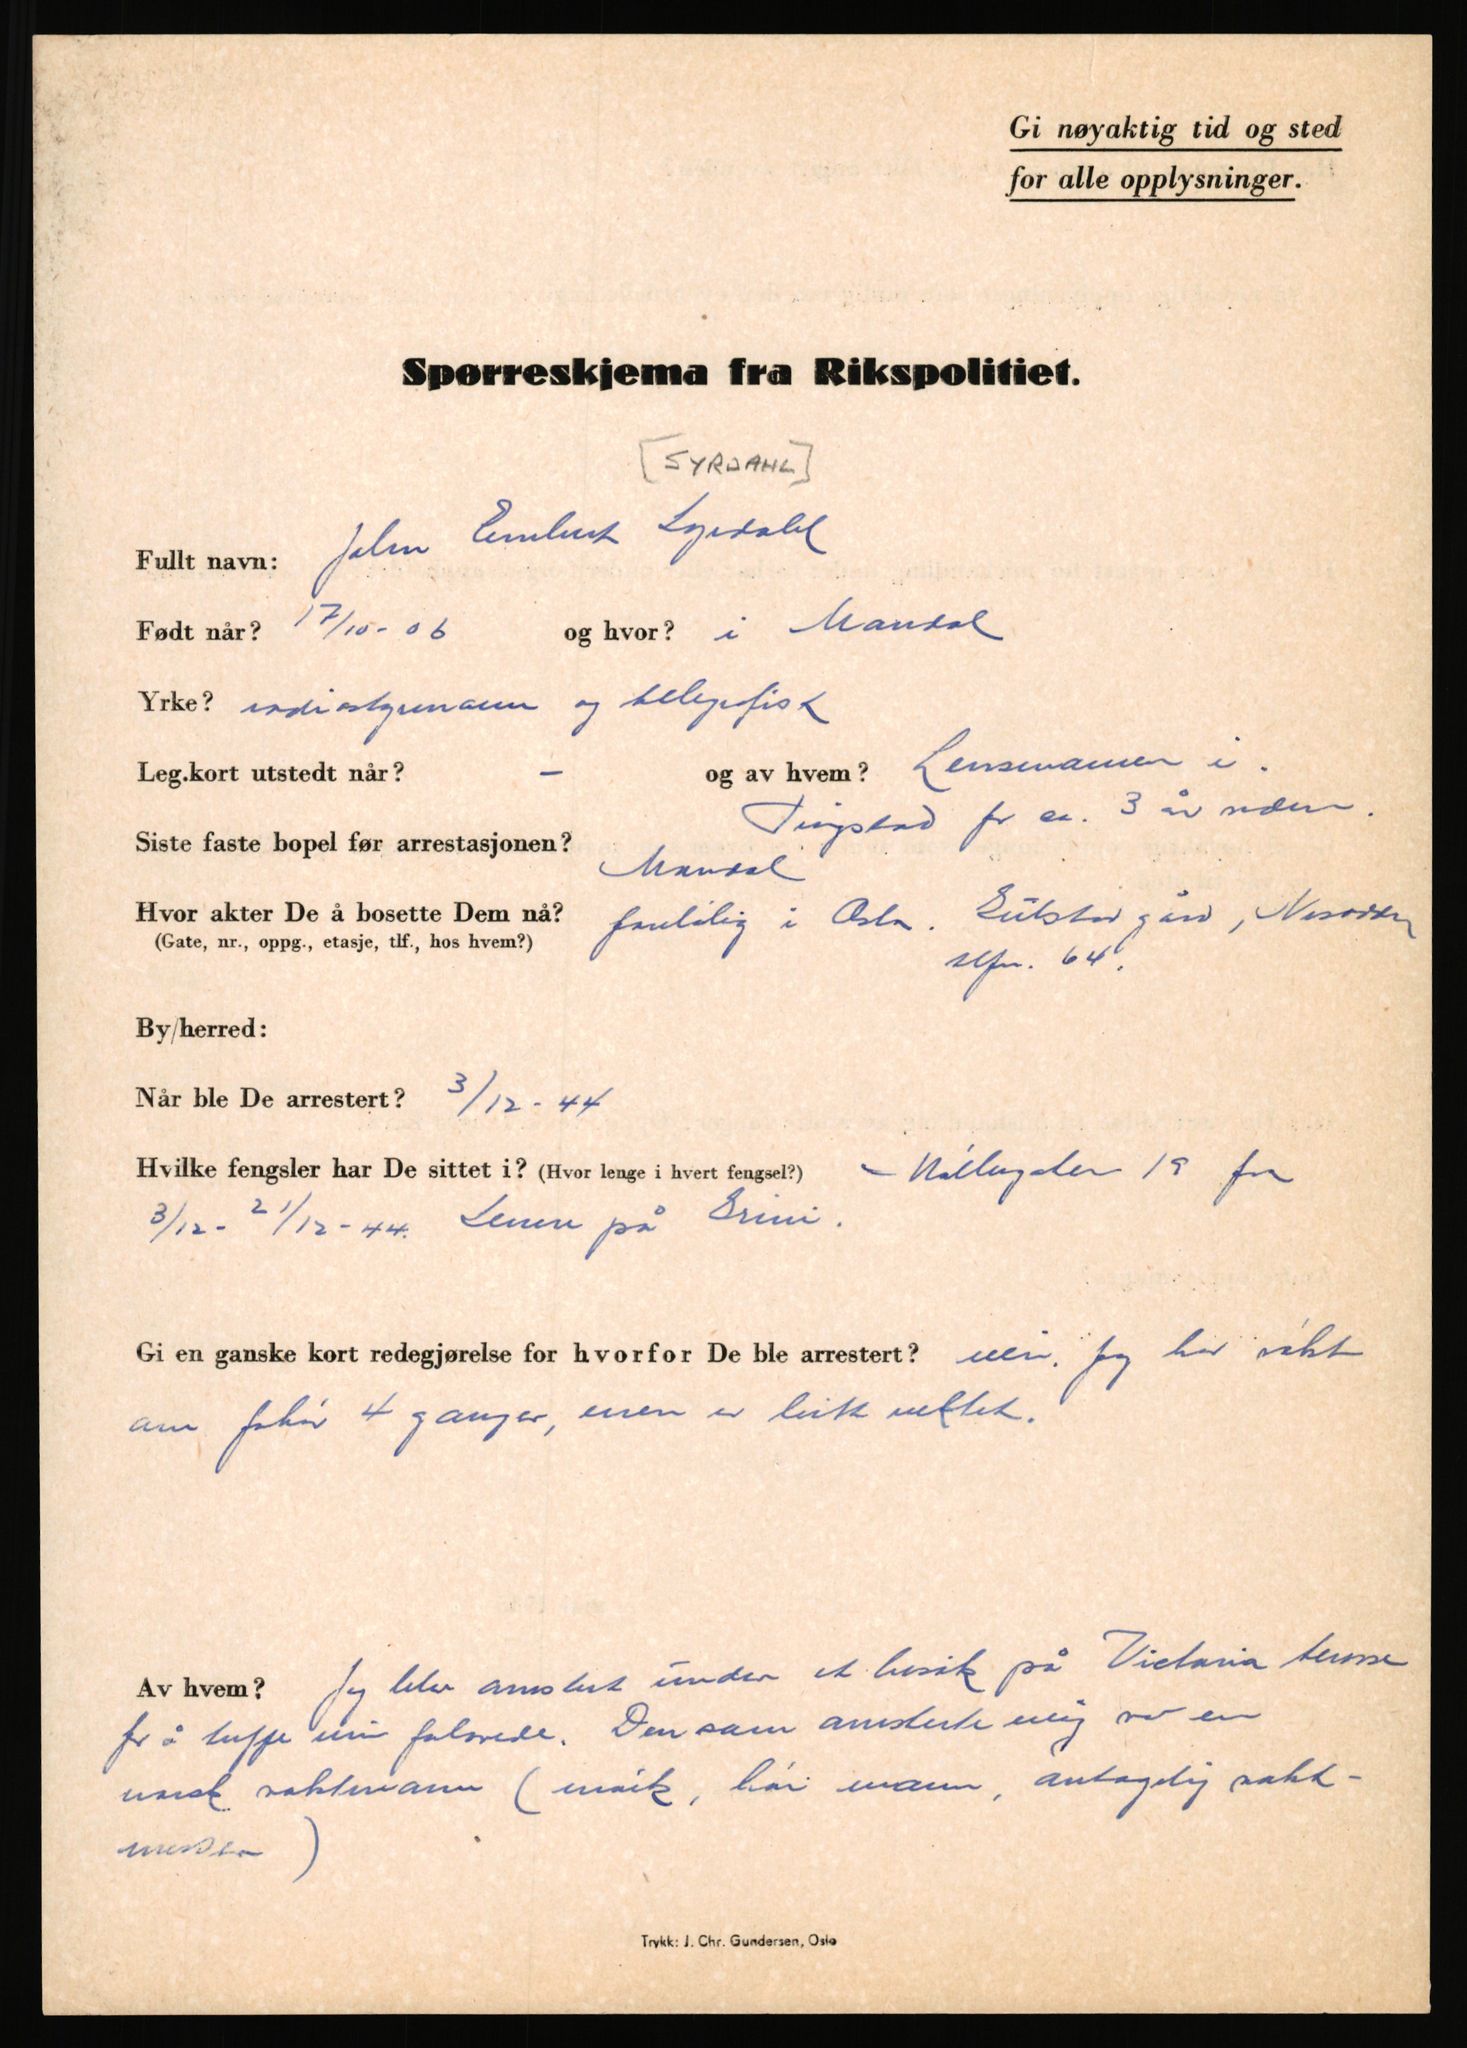 Gi nøyaktig tid og sted
for alle opplysninger.
Spørreskjema fra Rikspolitiet.
[SYRDAHL]
Fullt navn: John Syrdahl
Født når? 17/10-06 og hvor? i Mandal
Yrke? radiostyrmann og telegrafist
Leg.kort utstedt når? – og av hvem? Lensmannen i
for ca. 3 år siden.
Siste faste bopel før arrestasjonen? Mandal
Hvor akter De å bosette Dem nå? foreløbig i Oslo. gård, Nesodden
(Gate, nr., oppg., etasje, tlf., hos hvem?)
tlfn. 64.
By/herred:
Når ble De arrestert? 3/12-44
Hvilke fengsler har De sittet i? (Hvor lenge i hvert fengsel?) – Møllergaten 19 fra
3/12-21/12-44. Senere på Grini.
Gi en ganske kort redegjørelse for hvorfor De ble arrestert? nei. Jeg har søkt
om forhør 4 ganger, men er blitt nektet.
Av hvem? Jeg blev arrestert under et besøk på Victoria terrasse
for å treffe min forlovede. Den som arresterte meg var en
norsk vaktmann (mørk, høi mann, antagelig vakt-
mester)
Trykk: J. Chr. Gundersen, Oslo